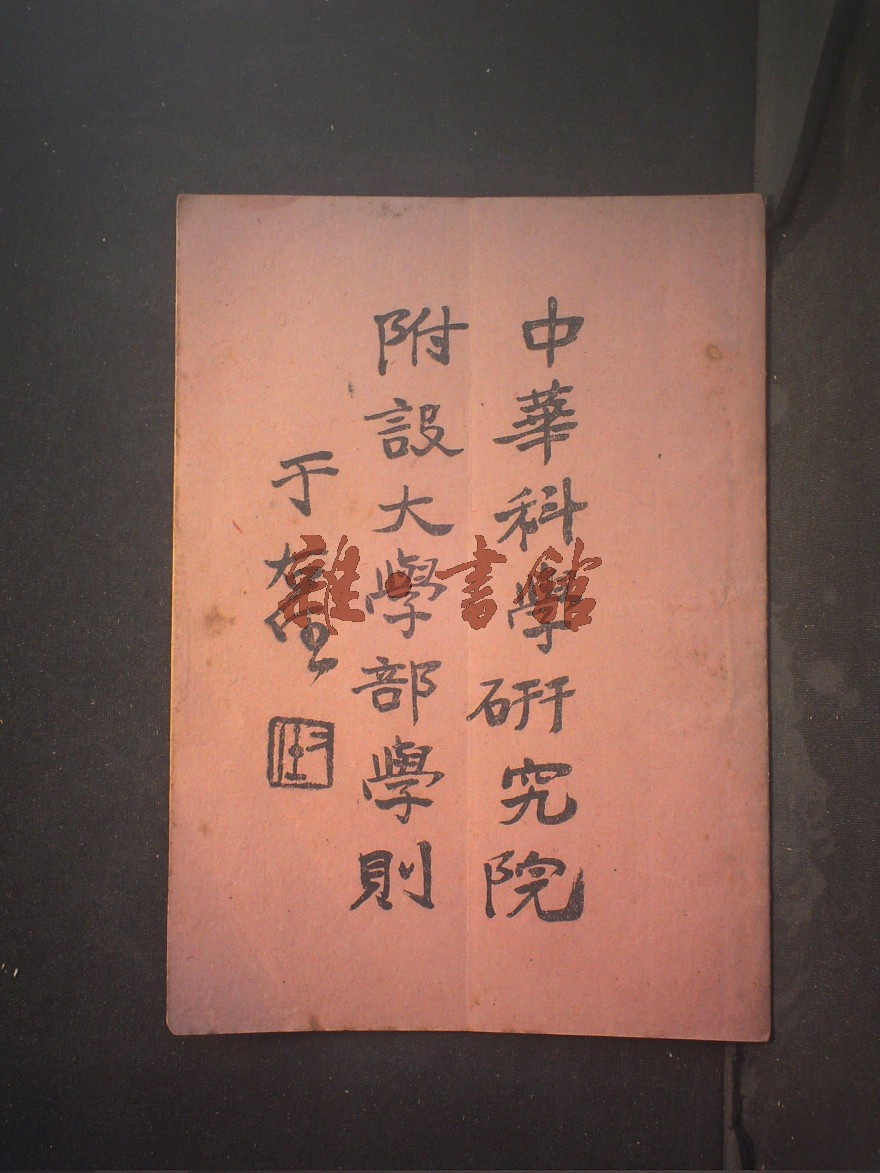 中華科學研究院
附設大學部學則
于
雜·書館